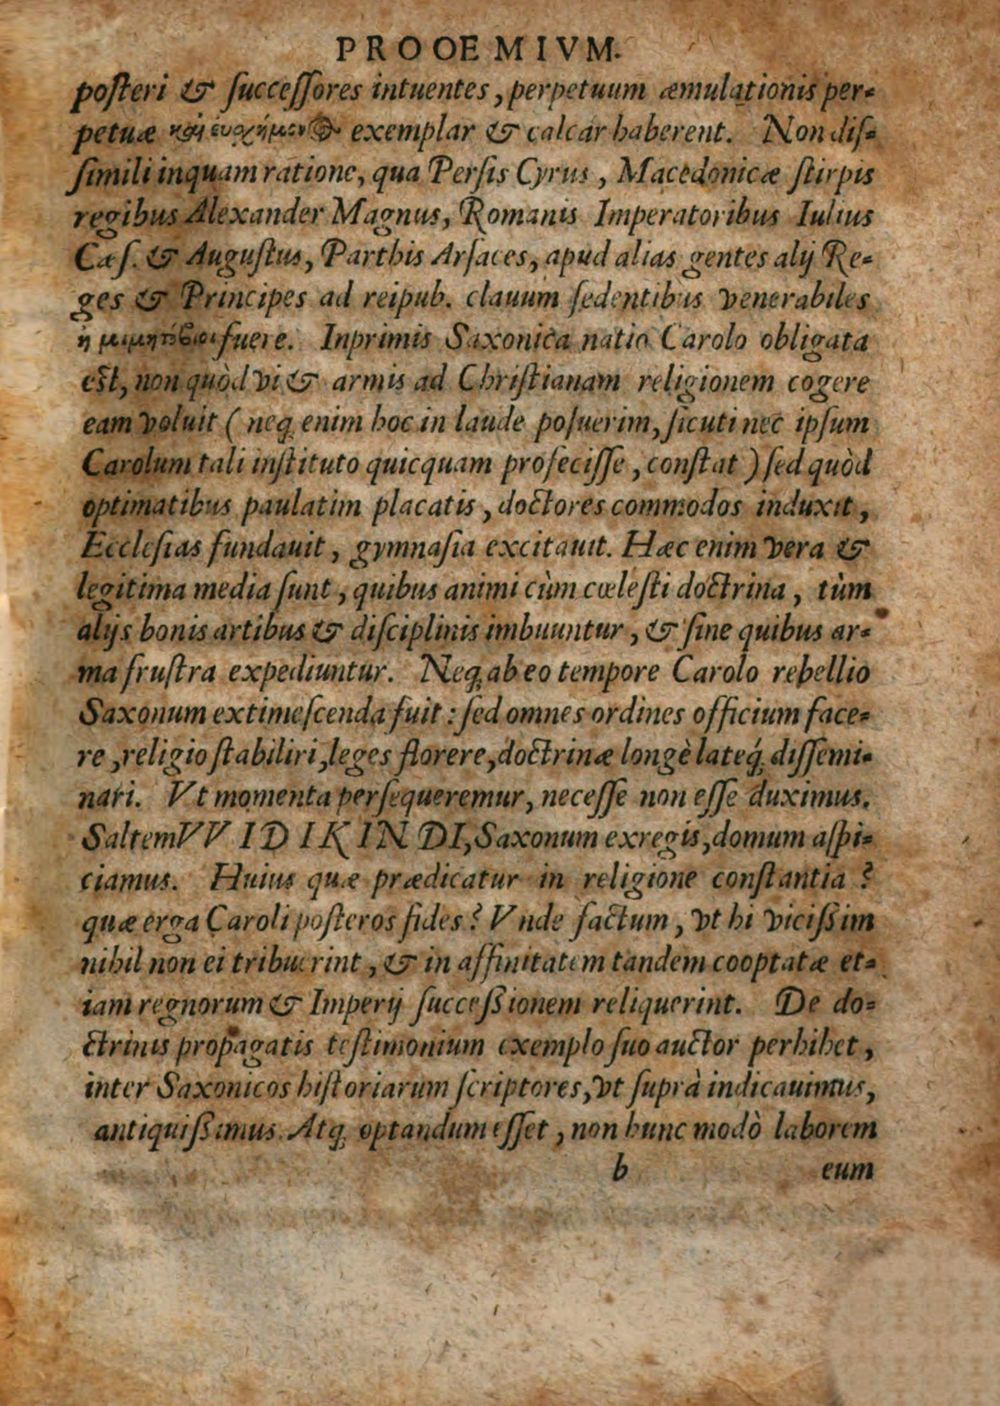 PROOEMIVM.
posteri & successores intuentes, perpetuum æmulationis per-
petuæ καὶ exemplar & calcar haberent. Non dis-
simili inquam ratione, qua Persis Cyrus, Macedonicæ stirpis
regibus Alexander Magnus, Romanis Imperatoribus Iulius
Cæs. & Augustus, Parthis Arsaces, apud alias gentes alij Re-
ges & Principes ad reipub. clauum sedentibus venerabiles
fuere. Inprimis Saxonica natio Carolo obligata
est, non quòd vi & armis ad Christianam religionem cogere
eam voluit (neq; enim hoc in laude posuerim, sicuti nec ipsum
Carolum tali instituto quicquam profecisse, constat) sed quòd
optimatibus paulatim placatis, doctores commodos induxit,
Ecclesias fundauit, gymnasia excitauit. Hæc enim vera &
legitima media sunt, quibus animi cùm cœlesti doctrina, tùm
alijs bonis artibus & disciplinis imbuuntur, & sine quibus ar-
ma frustra expediuntur. Neq; ab eo tempore Carolo rebellio
Saxonum extimescenda fuit: sed omnes ordines officium face-
re, religio stabiliri, leges florere, doctrinæ longè lateq́; dissemi-
nari. Vt momenta persequeremur, necesse non esse duximus.
Saltem VVIDIKINDI, Saxonum ex regis, domum aspi-
ciamus. Huius quæ prædicatur in religione constantia?
quæ erga Caroli posteros fides? Vnde factum, vt hi vicißim
nihil non ei tribuerint, & in affinitatem tandem cooptatæ et-
iam regnorum & Imperij succeßionem reliquerint. De do-
ctrinis propagatis testimonium exemplo suo auctor perhibet,
inter Saxonicos historiarum scriptores, vt suprà indicauimus,
antiquißimus. Atq; optandum esset, non hunc modò laborem
b eum